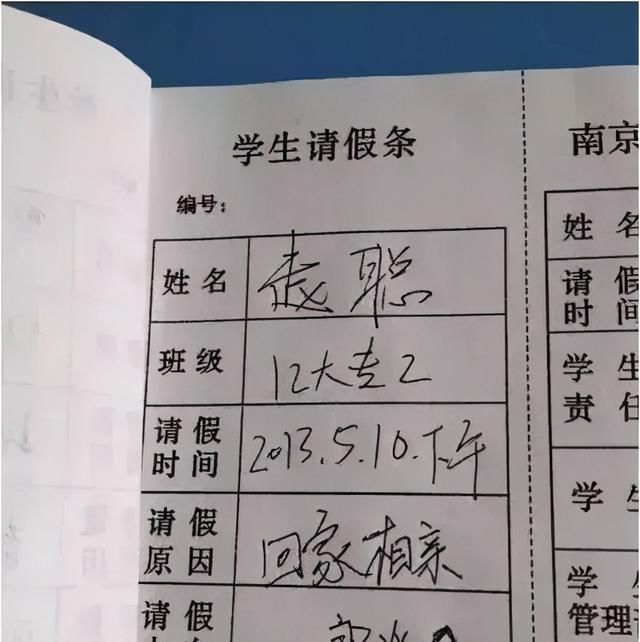 学生请假条
编号:
姓名 聪
班级 12大专2
请假时间 2013.5.10.下午
请假原因 回家相亲
请假
南京
姓名
请假时间
学生
责任
学生
学
管理